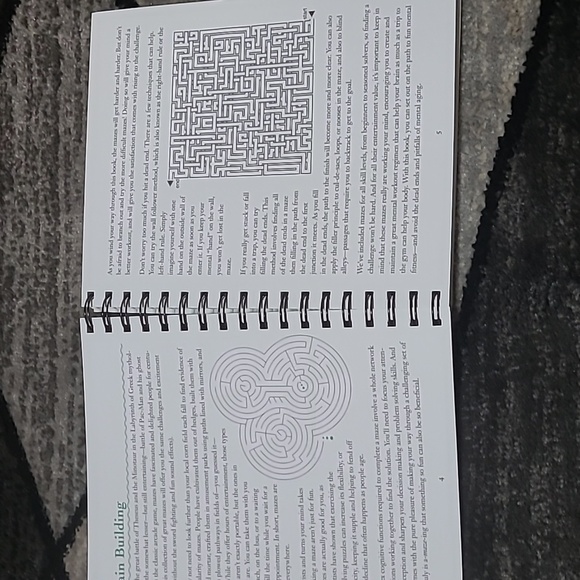 in Building
the great battle of Theseus and the Minotaur in the Labyrinth of Greek mythol-
the somewhat lesser—but still entertaining—battle of Pac-Man and his ghost
article game, mazes have fascinated and delighted people for centu-
collection of great mazes will offer you the same challenges and excitement
without the sword fighting and fun sound effects).
not need to look further than your local corn field each fall to find evidence of
of mazes. People have cultivated them out of hedges, built them with
mortar, crafted them in amusement parks using paths lined with mirrors, and
plowed pathways in fields of—you guessed it—
While these are great forms of entertainment, those types
aren't exactly portable, but the ones in
are. You can take them with you
on the bus, or to a waiting
the time while you wait for a
appointment. In short, mazes are
everywhere.
and turns your mind takes
a maze aren't just for fun.
are actually good for you, as
have shown that exercising the
solving puzzles can increase its flexibility, or
keeping it supple and helping to fend off
decline that often happens as people age.
cognitive functions required to complete a maze involve a whole network
working together to find the solution. You'll need to focus your atten-
and sharpen your decision making and problem solving skills. And
comes with the pure pleasure of making your way through a challenging set of
is a-maze-ing that something so fun can also be so beneficial.
4
As you wind your way through this book, the mazes will get harder and harder. But don't
be afraid to branch out and try the more difficult mazes! Doing so will give your mind a
better workout, and will give you the satisfaction that comes with rising to the challenge.
Don't worry too much if you hit a dead end. There are a few techniques that can help.
You can try the wall follower method, which is also known as the right-hand rule or the
left-hand rule. Simply
imagine yourself with one
hand on the outside wall of
the maze as soon as you
enter it. If you keep your
mental "hand" on the wall,
you won't get lost in the
maze.
end
start
If you really get stuck or fall
into a trap, you can try
filling the dead ends. This
method involves finding all
of the dead ends in a maze
then filling in the path from
the dead end to the first
junction it meets. As you fill
in the dead ends, the path to the finish will become more and more clear. You can also
apply the filler principle to cul-de-sacs, loops, or nooses in the maze, and also to blind
alleys—passages that require you to backtrack to get to the goal.
We've included mazes for all skill levels, from beginners to seasoned solvers, so finding a
challenge won't be hard. And for all their entertainment value, it's important to keep in
mind that these mazes really are working your mind, encouraging you to create and
maintain a great mental workout regimen that can help your brain as much as a trip to
the gym can help your body. With this book, you can set out on the path to fun mental
fitness—and avoid the dead ends and pitfalls of mental aging.
5